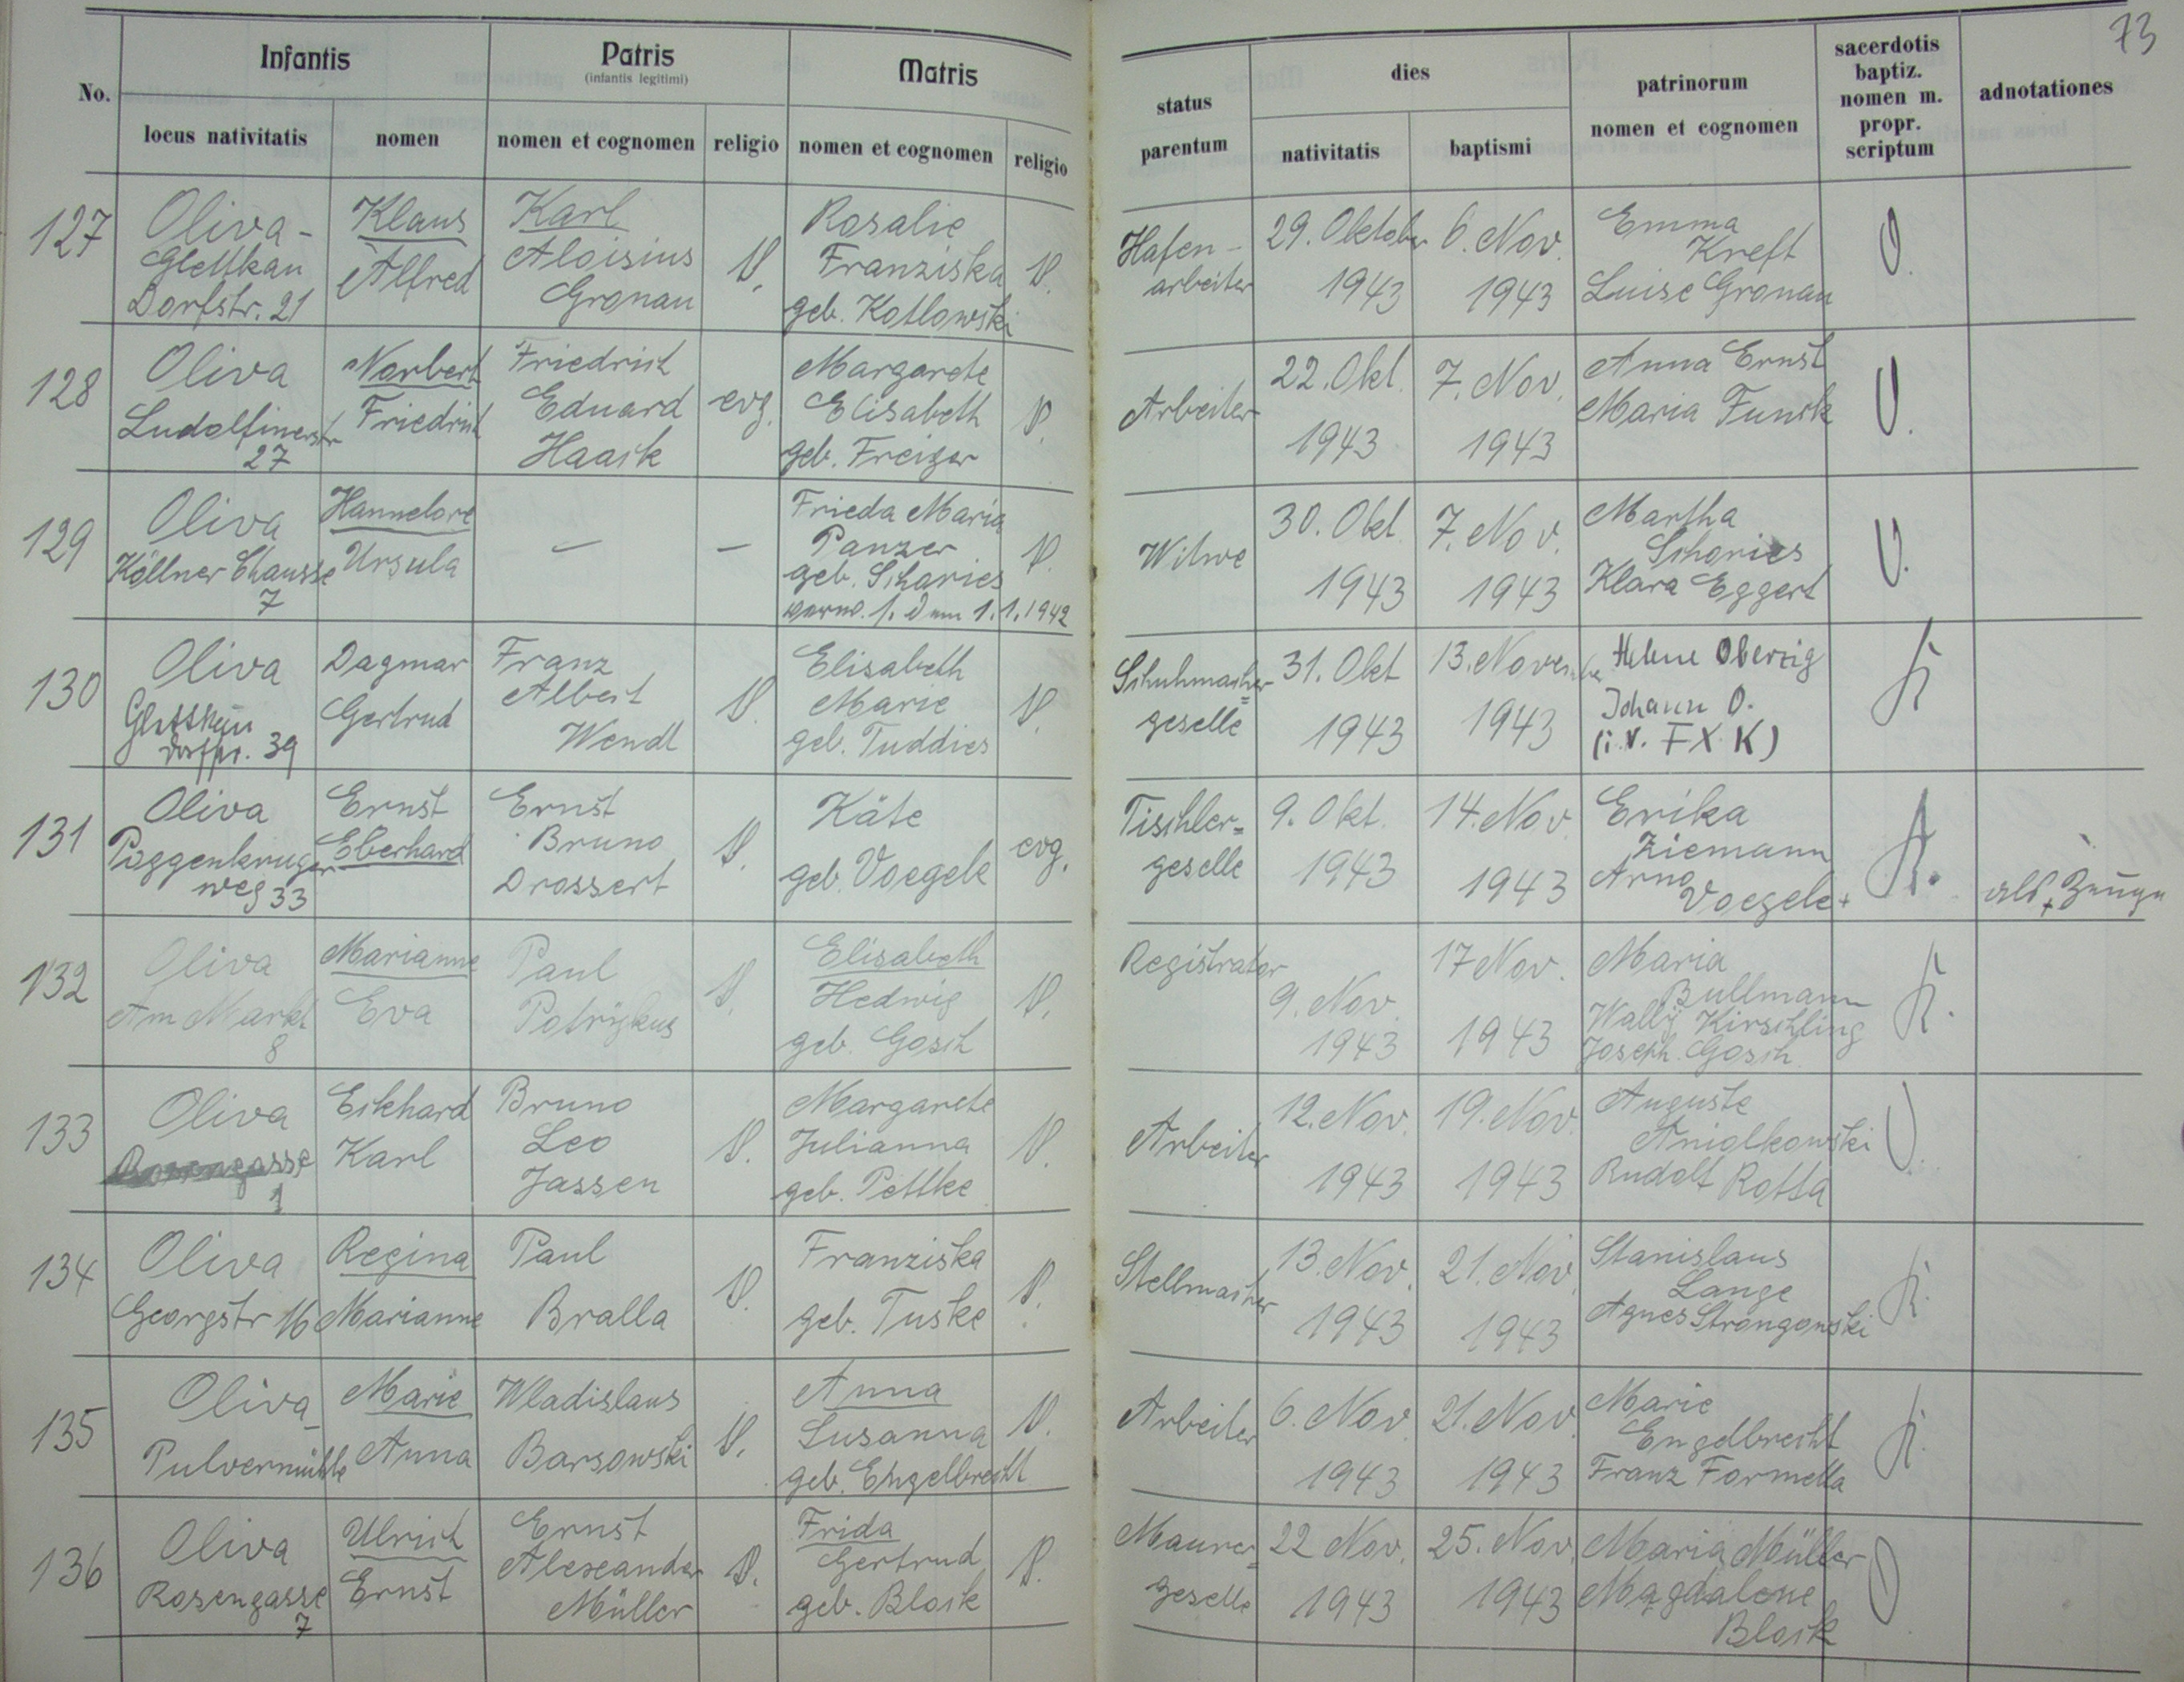 73
No.
Infantis
Patris
(infantis legitimi)
Matris
locus nativitatis
nomen
nomen et cognomen
religio
nomen et cognomen
religio
status
parentum
dies
nativitatis
baptismi
patrinorum
nomen et cognomen
sacerdotis
baptiz.
nomen m.
propr.
scriptum
adnotationes
127
Oliva-
Glettkau
Dorfstr. 21
Klaus
Alfred
Karl
Aloisius
Gronau
Rosalie
Franziska
geb. Kotlowski
Hafen-
arbeiter
29. Oktober
1943
6. Nov.
1943
Emma
Kreft
Luise Gronau
128
Oliva
Ludolfinerstr
27
Norbert
Friedrich
Friedrich
Eduard
Haack
evg.
Margarete
Elisabeth
geb. Freiger
Arbeiter
22. Okt.
1943
7. Nov.
1943
Anna Ernst
Maria Funck
129
Oliva
Köllner Chausse
7
Hannelore
Ursula
—
—
Frieda Maria
Panzer
geb. Scharies
1.1.1942
Witwe
30. Okt.
1943
7. Nov.
1943
Martha
Schories
Klara Eggert
130
Oliva
Glettkau
39
Dagmar
Gertrud
Franz
Albert
Wendt
Elisabeth
Marie
geb. Tuddies
Schuhmacher=
geselle
31. Okt
1943
13. November
1943
Helene Oberzig
Johann O.
(i.V. F X K)
K
131
Oliva
Poggenkruger
weg 33
Ernst
Eberhard
Ernst
Bruno
Drossert
Käte
geb. Voegele
evg.
Tischler=
geselle
9. Okt.
1943
14. Nov
1943
Erika
Ziemann
Arno
Voegele +
K.
als + Zeuge
132
Oliva
Am Markt
8
Marianne
Eva
Paul
Patrÿkus
Elisabeth
Hedwig
geb. Gosch
Registrator
9. Nov.
1943
17 Nov.
1943
Maria
Bullmann
Wally Kirschling
Joseph Gosch
K.
133
Oliva
1
Eckhard
Karl
Bruno
Leo
Jassen
Margarete
Julianna
geb. Pettke
Arbeiter
12. Nov.
1943
19. Nov.
1943
Auguste
Aniolkowski
Rudolf Rotta
134
Oliva
Georgstr 16
Regina
Marianne
Paul
Bralla
Franziska
geb. Tuske
Stellmacher
13. Nov.
1943
21. Nov.
1943
Stanislaus
Lange
Agnes Strongowski
K.
135
Oliva-
Pulvermühle
Marie
Anna
Wladislaus
Barsowski
Anna
Susanna
geb. Engelbrecht
Arbeiter
6. Nov.
1943
21. Nov.
1943
Marie
Engelbrecht
Franz Formella
K.
136
Oliva
Rosengasse
7
Ulrich
Ernst
Ernst
Alexander
Müller
Frida
Gertrud
geb. Block
Maurer=
geselle
22 Nov.
1943
25. Nov.
1943
Maria Müller
Magdalene
Block